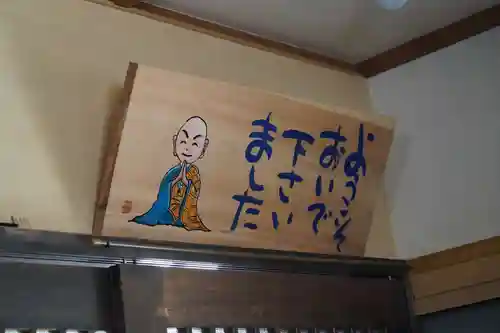 ようこそ
おいで
下さい
ました